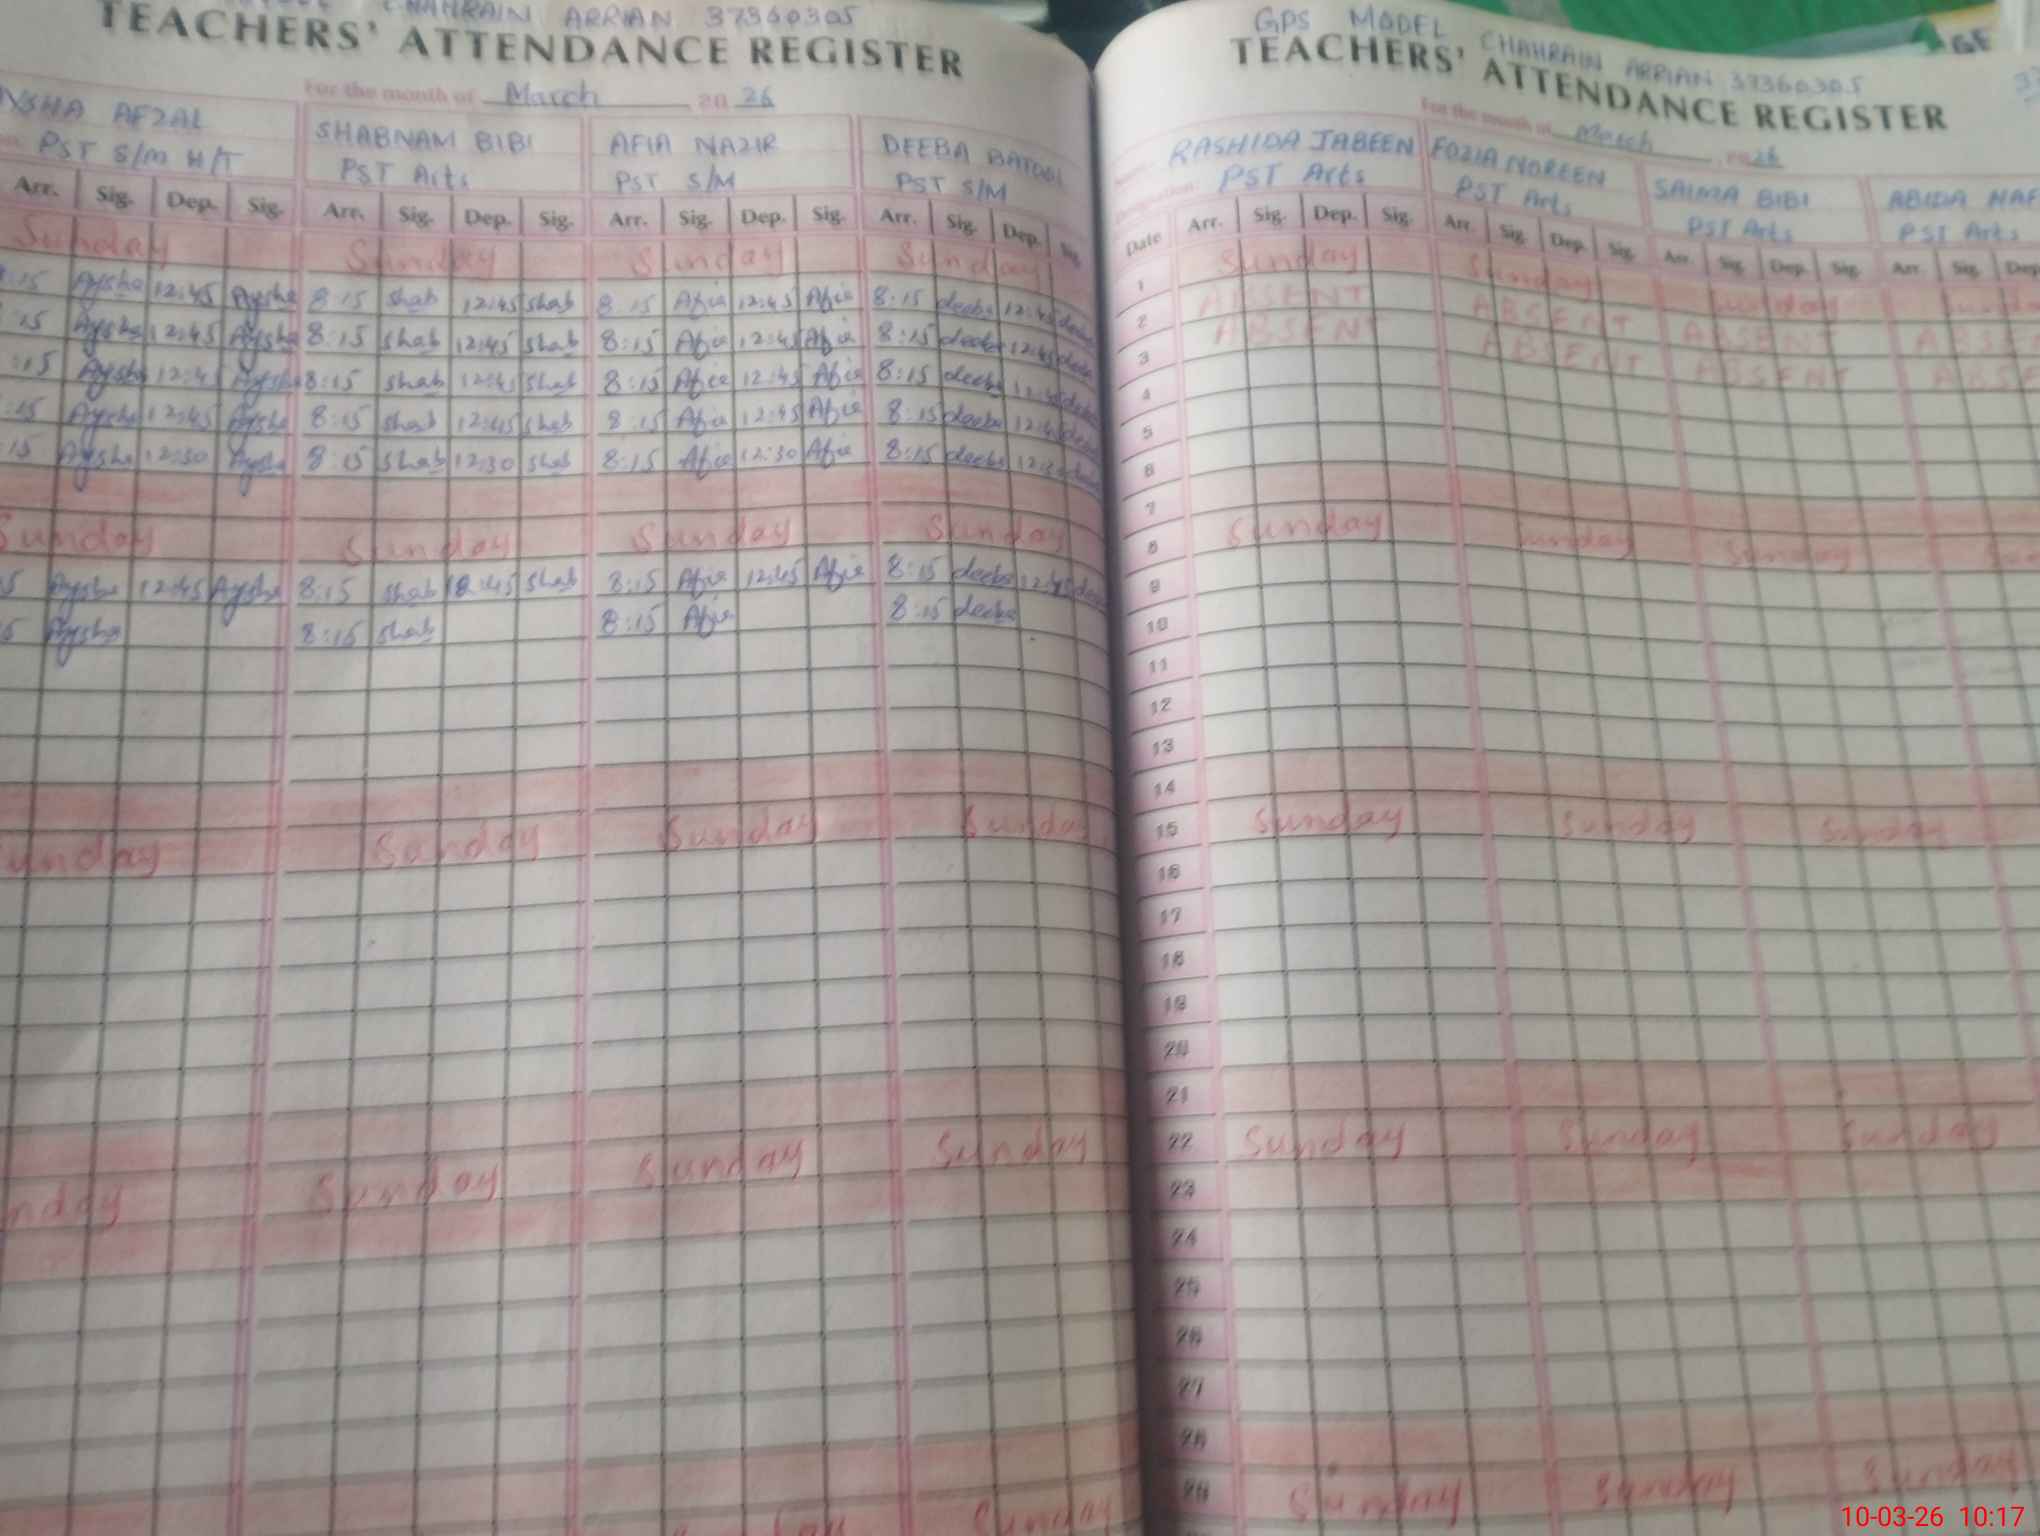 CHAHRAIN ARRIAN 37360305
TEACHERS' ATTENDANCE REGISTER
For the month of March 20 26
AFZAL SHABNAM BIBI AFIA NAZIR DEEBA
PST S/M H/T PST Arts PST S/M PST S/M
Arr. Sig. Dep. Sig. Arr. Sig. Dep. Sig. Arr. Sig. Dep. Sig. Arr. Sig. Dep. Sig.
Sunday Sunday Sunday Sunday
:15 Aysha 12:45 Aysha 8:15 shab 12:45 shab 8:15 Afia 12:45 Afia 8:15 deeba 12:45 deeba
:15 Aysha 12:45 Aysha 8:15 shab 12:45 shab 8:15 Afia 12:45 Afia 8:15 deeba 12:45 deeba
:15 Aysha 12:45 Aysha 8:15 shab 12:45 shab 8:15 Afia 12:45 Afia 8:15 deeba 12:45 deeba
:15 Aysha 12:45 Aysha 8:15 shab 12:45 shab 8:15 Afia 12:45 Afia 8:15 deeba 12:45 deeba
15 Aysha 12:30 Aysha 8:15 shab 12:30 shab 8:15 Afia 12:30 Afia 8:15 deeba 12:30
Sunday Sunday Sunday Sunday
5 Aysha 12:45 Aysha 8:15 shab 12:45 shab 8:15 Afia 12:45 Afia 8:15 deeba 12:45
5 Aysha 8:15 shab 8:15 Afia 8:15 deeba
unday Sunday Sunday Sunday
nday Sunday Sunday Sunday
Sunday
GPS MODEL CHAHRAIN ARRIAN 37360305
TEACHERS' ATTENDANCE REGISTER
For the month of March 26
RASHIDA JABEEN FOZIA NOREEN SAIMA BIBI ABIDA
PST Arts PST Arts PST Arts PST Arts
Date Arr. Sig. Dep. Sig. Arr. Sig. Dep. Sig. Arr. Sig. Dep. Sig. Arr. Sig. Dep
1 Sunday Sunday Sunday Sunday
2 ABSENT ABSENT ABSENT ABSE
3 ABSENT ABSENT ABSENT ABSE
4
5
6
7
8 Sunday Sunday Sunday
9
10
11
12
13
14
15 Sunday Sunday Sunday
16
17
18
19
20
21
22 Sunday Sunday Sunday
23
24
25
26
27
28
29 Sunday Sunday Sunday
10-03-26 10:17